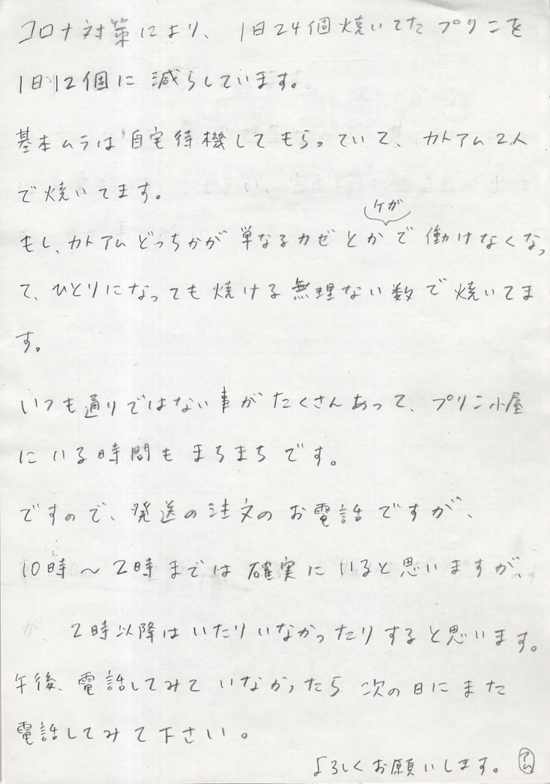 コロナ対策により、1日24個焼いてたプリンを
1日12個に減らしています。
基本ムラは自宅待機してもらっていて、カトアム2人
で焼いてます。
ケガ
もし、カトアムどっちかが単なるカゼとかで働けなくなっ
て、ひとりになっても焼ける無理ない数で焼いてま
す。
いつも通りではない事がたくさんあって、プリン小屋
にいる時間もまちまちです。
ですので、発送の注文のお電話ですが、
10時～2時までは確実にいると思いますが、
2時以降はいたりいなかったりすると思います。
午後、電話してみていなかったら次の日にまた
電話してみて下さい。
よろしくお願いします。アム